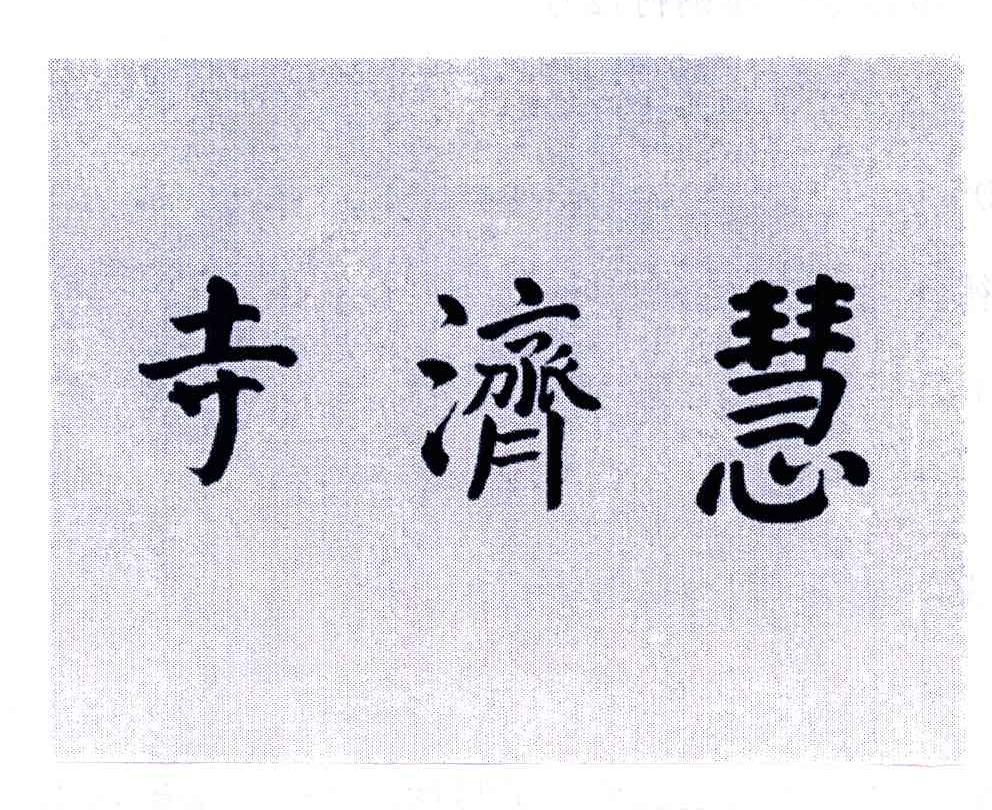 慧濟寺